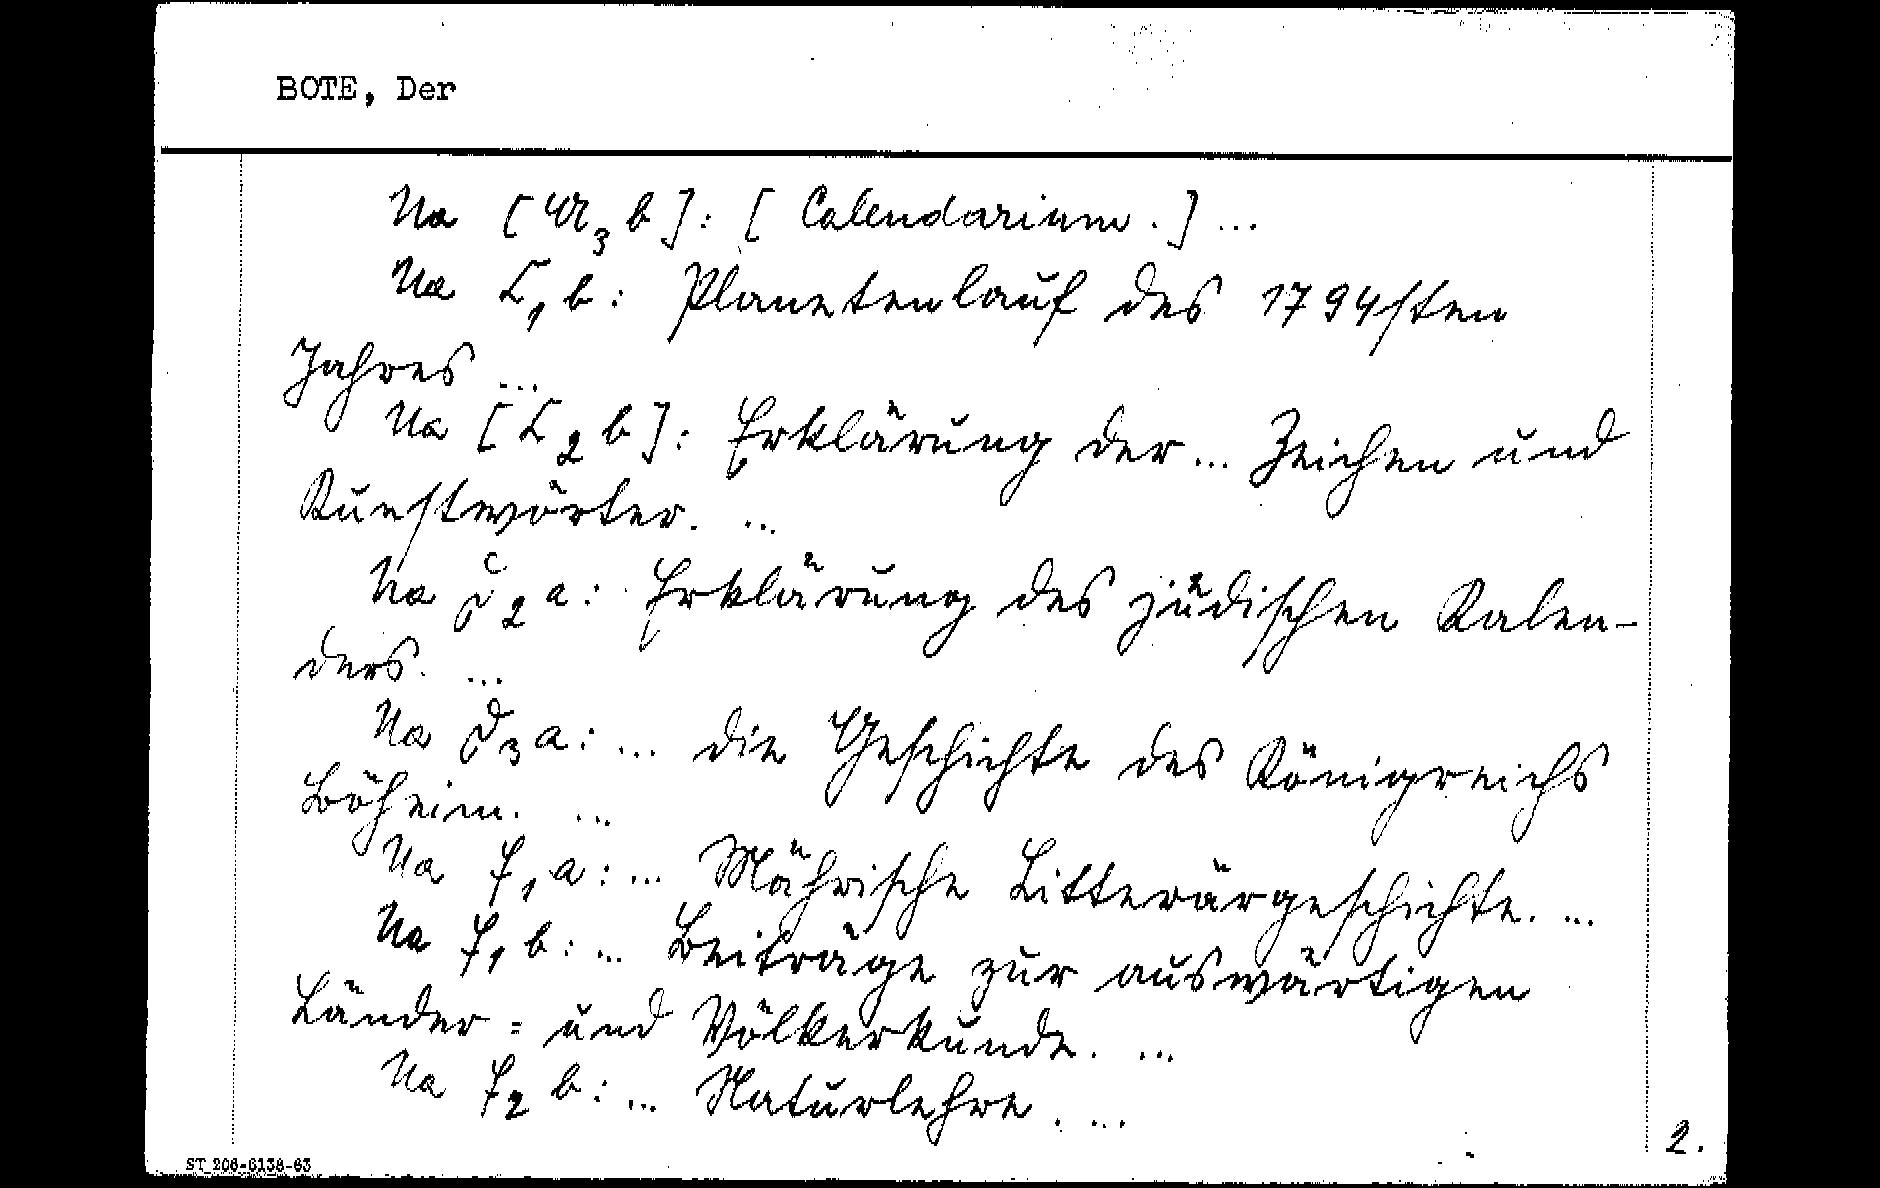 BOTE, Der
Na [A₃b]: [Calendarium.] ...
Na C₁b: Planetenlauf des 1794sten
Jahres ...
Na [C₂b]: Erklärung der... Zeichen und
Kunstwörter. ...
Na 2a: Erklärung des jüdischen Kalen-
ders. ...
Na 3a: ... die Geschichte des Königreichs
Böheim. ...
Na f₁a: ... Mährische Litterärgeschichte. ...
Na f₁b: ... Beiträge zur auswärtigen
Länder= und Völkerkunde. ...
Na f₂b: ... Naturlehre. ...
2.
ST 206-6138-63